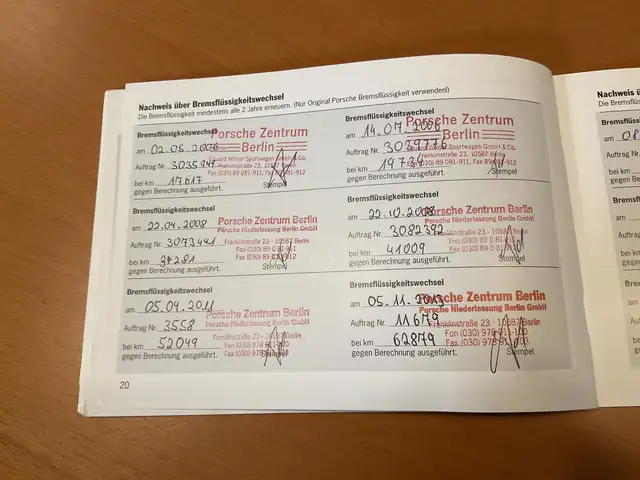 Nachweis über Bremsflüssigkeitswechsel
Die Bremsflüssigkeit mindestens alle 2 Jahre erneuern. (Nur Original Porsche Bremsflüssigkeit verwenden!)
Bremsflüssigkeitswechsel
Porsche Zentrum
Berlin
am 02.05.2006
Eduard Winter Sportwagen GmbH & Co.
Auftrag Nr. 3035947
Franklinstraße 23, 10587 Berlin
Fon (030) 89 081-911, Fax 89 081-912
bei km 17617
gegen Berechnung ausgeführt.
Stempel
Bremsflüssigkeitswechsel
Porsche Zentrum
Berlin
am 14.07.2006
Sportwagen GmbH & Co.
Auftrag Nr. 3039776
Franklinstraße 23, 10587 Berlin
(030) 89 081-911, Fax 89 081-912
bei km 19734
gegen Berechnung ausgeführt.
Stempel
Bremsflüssigkeitswechsel
am 22.04.2008
Porsche Zentrum Berlin
Porsche Niederlassung Berlin GmbH
Auftrag Nr. 3073441
Franklinstraße 23 · 10587 Berlin
Fon (030) 89 0 81-911
Fax (030) 89 0 81-912
bei km 37281
gegen Berechnung ausgeführt.
Stempel
Bremsflüssigkeitswechsel
am 22.10.2008
Porsche Zentrum Berlin
Porsche Niederlassung Berlin GmbH
Auftrag Nr. 3082392
Franklinstraße 23 · 10587 Berlin
bei km 41009
gegen Berechnung ausgeführt.
Stempel
Bremsflüssigkeitswechsel
am 05.04.2011
Porsche Zentrum Berlin
Porsche Niederlassung Berlin GmbH
Auftrag Nr. 3558
Franklinstraße 23 · 10587 Berlin
bei km 52049
gegen Berechnung ausgeführt.
Stempel
Bremsflüssigkeitswechsel
am 05.11.2013
Porsche Zentrum Berlin
Porsche Niederlassung Berlin GmbH
Auftrag Nr. 11679
Franklinstraße 23 · 10587 Berlin
bei km 62879
gegen Berechnung ausgeführt.
Stempel
20
Nachweis ü
Die Bremsflüssig
Bremsflüss
am 08
Auftrag Nr.
bei km
gegen Bere
Bremsflüss
am
Auftrag Nr.
bei km
gegen Bere
Bremsflüss
am
Auftrag Nr.
bei km
gegen Bere